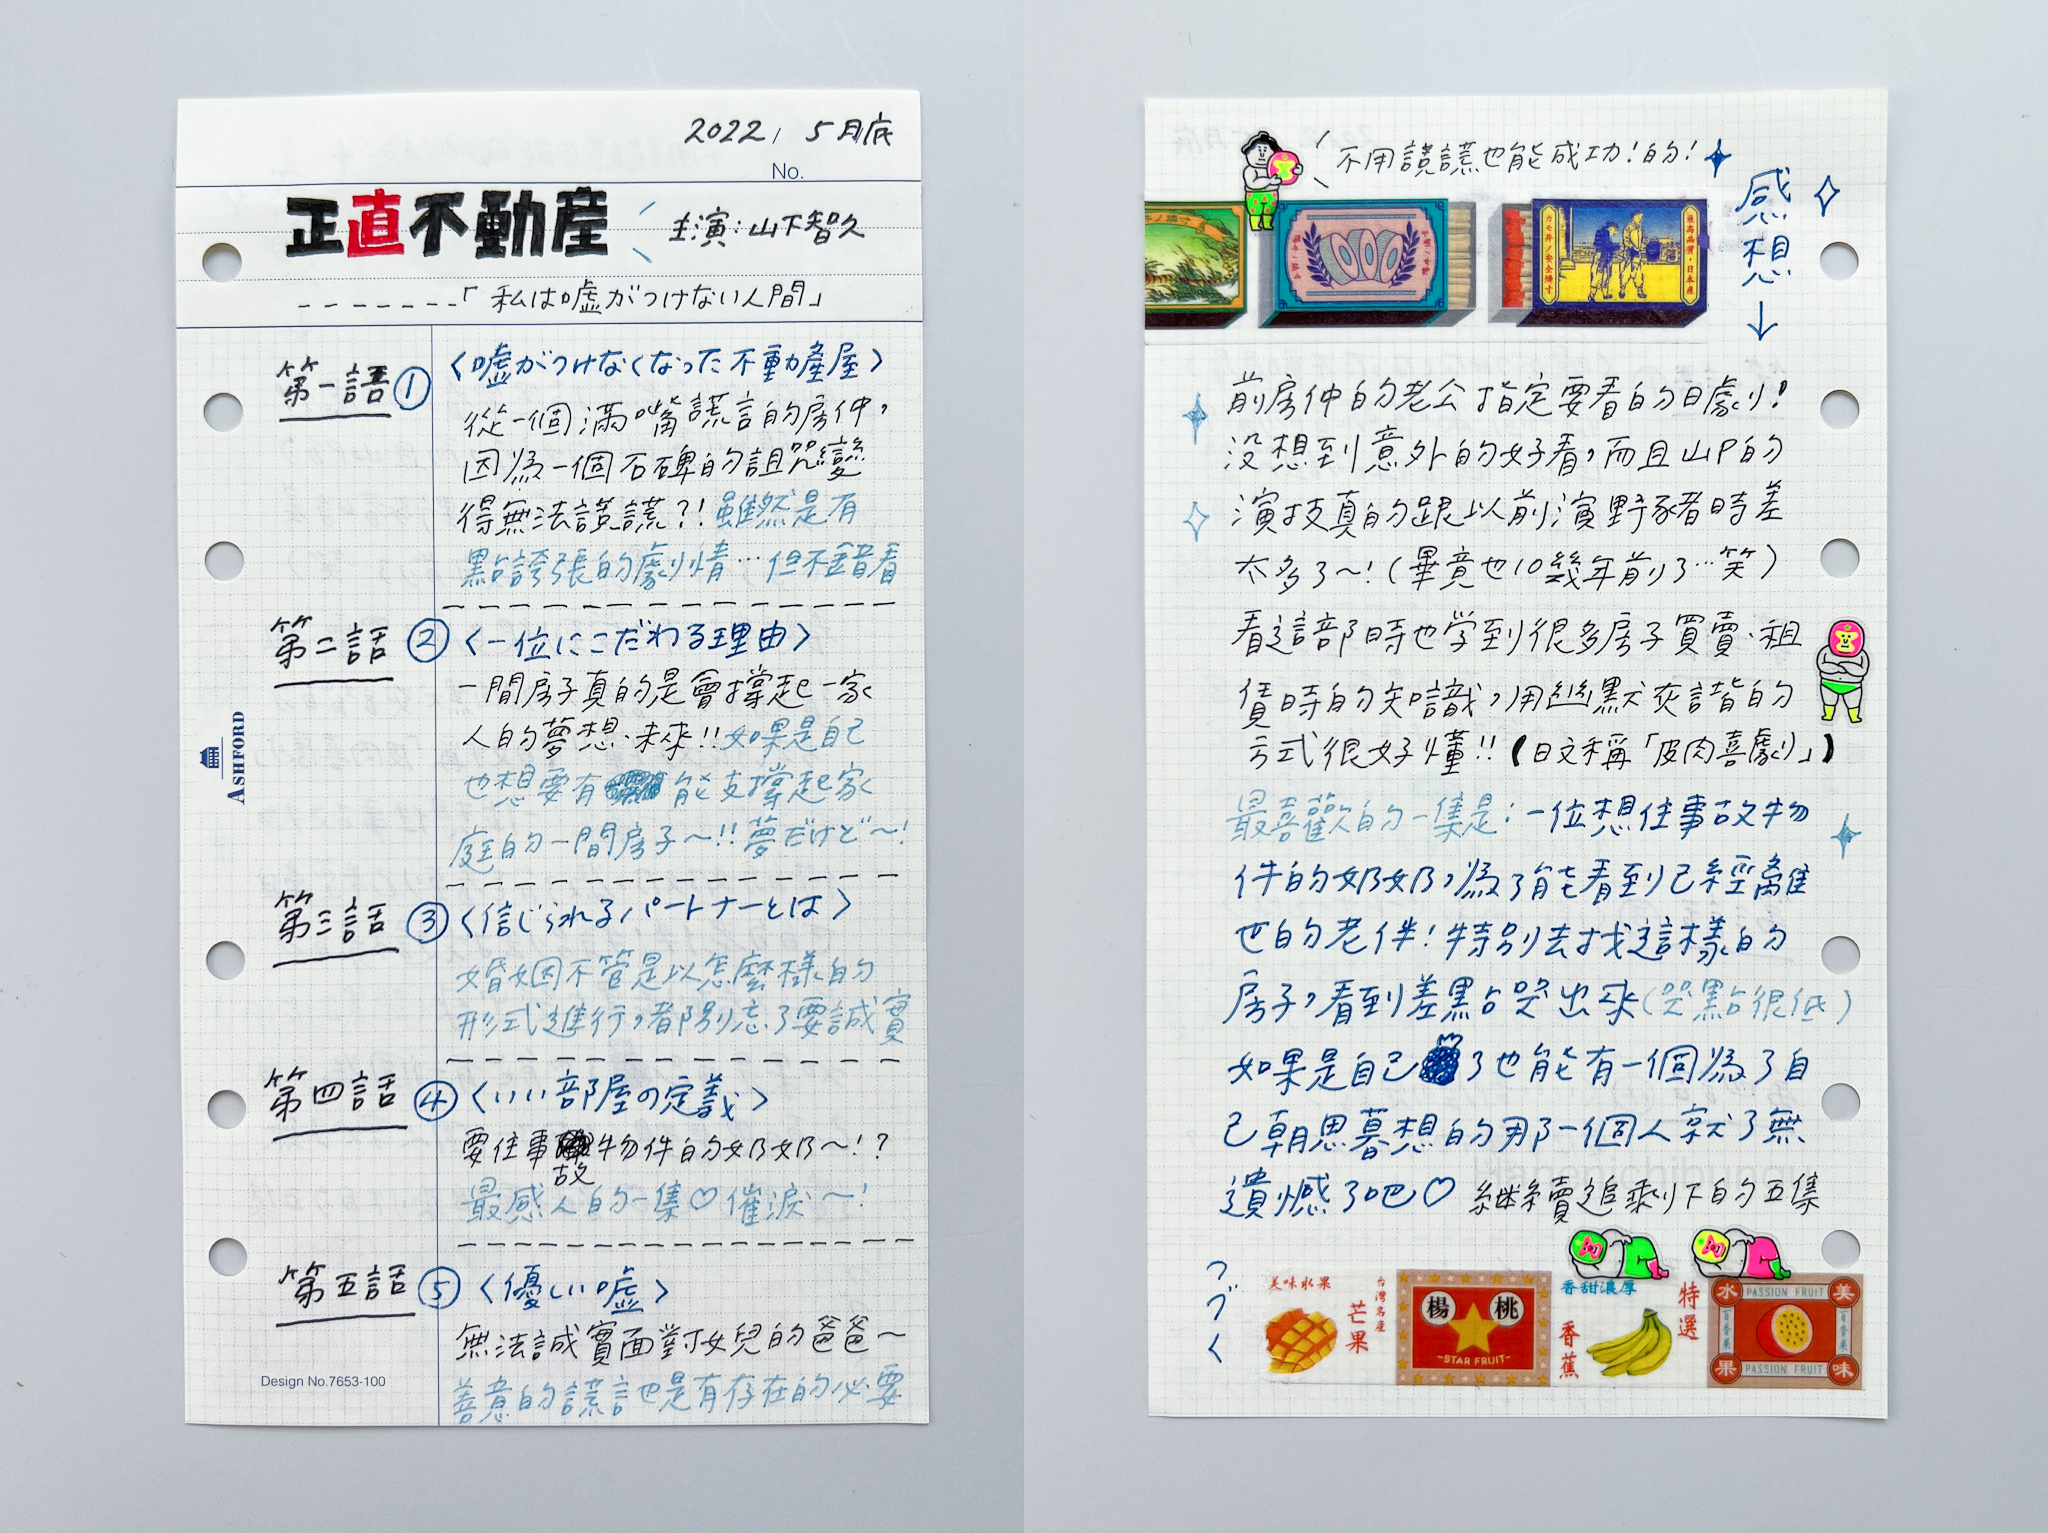 2022, 5月底
No.
正直不動産
主演:山下智久
「私は嘘がつけない人間」
第一話 ① 〈嘘がつけなくなった不動産屋〉
從一個滿嘴謊言的房仲,
因為一個石碑的詛咒變
得無法說謊?!雖然是有
點誇張的劇情…但不錯看
第二話 ② 〈一位にこだわる理由〉
一間房子真的是會撐起一家
人的夢想、未來!!如果是自己
也想要有 能支撐起家
庭的一間房子～!!夢だけど～!
第三話 ③ 〈信じられるパートナーとは〉
婚姻因不管是以怎麼樣的
形式進行,都別忘了要誠實
第四話 ④ 〈いい部屋の定義〉
要住事故物件的奶奶～!?
最感人的一集♡催淚～!
第五話 ⑤ 〈優しい嘘〉
無法誠實面對女兒的爸爸～
善意的謊言也是有存在的必要
ASHFORD
Design No.7653-100
不用說謊也能成功!的!
感想↓
最高品質・日本産
前房仲的老公指定要看的日劇!
沒想到意外的好看,而且山P的
演技真的跟以前演野豬時差
太多了～!(畢竟也10幾年前了…笑)
看這部時也学到很多房子買賣、租
賃時的知識,用幽默灰諧的
方式很好懂!!(日文稱「皮肉喜劇」)
最喜歡的一集是:一位想住事故物
件的奶奶,為了能看到已經離
世的老伴!特別去找這樣的
房子,看到差點哭出來(哭點很低)
如果是自己 了也能有一個為了自
己朝思暮想的那一個人就了無
遺憾了吧♡ 繼續追剩下的五集
つづく
美味水果
台灣名産
芒果
楊桃
STAR FRUIT
香甜濃厚
香蕉
特選
水果
美味
PASSION FRUIT
百香果
百香果
PASSION FRUIT